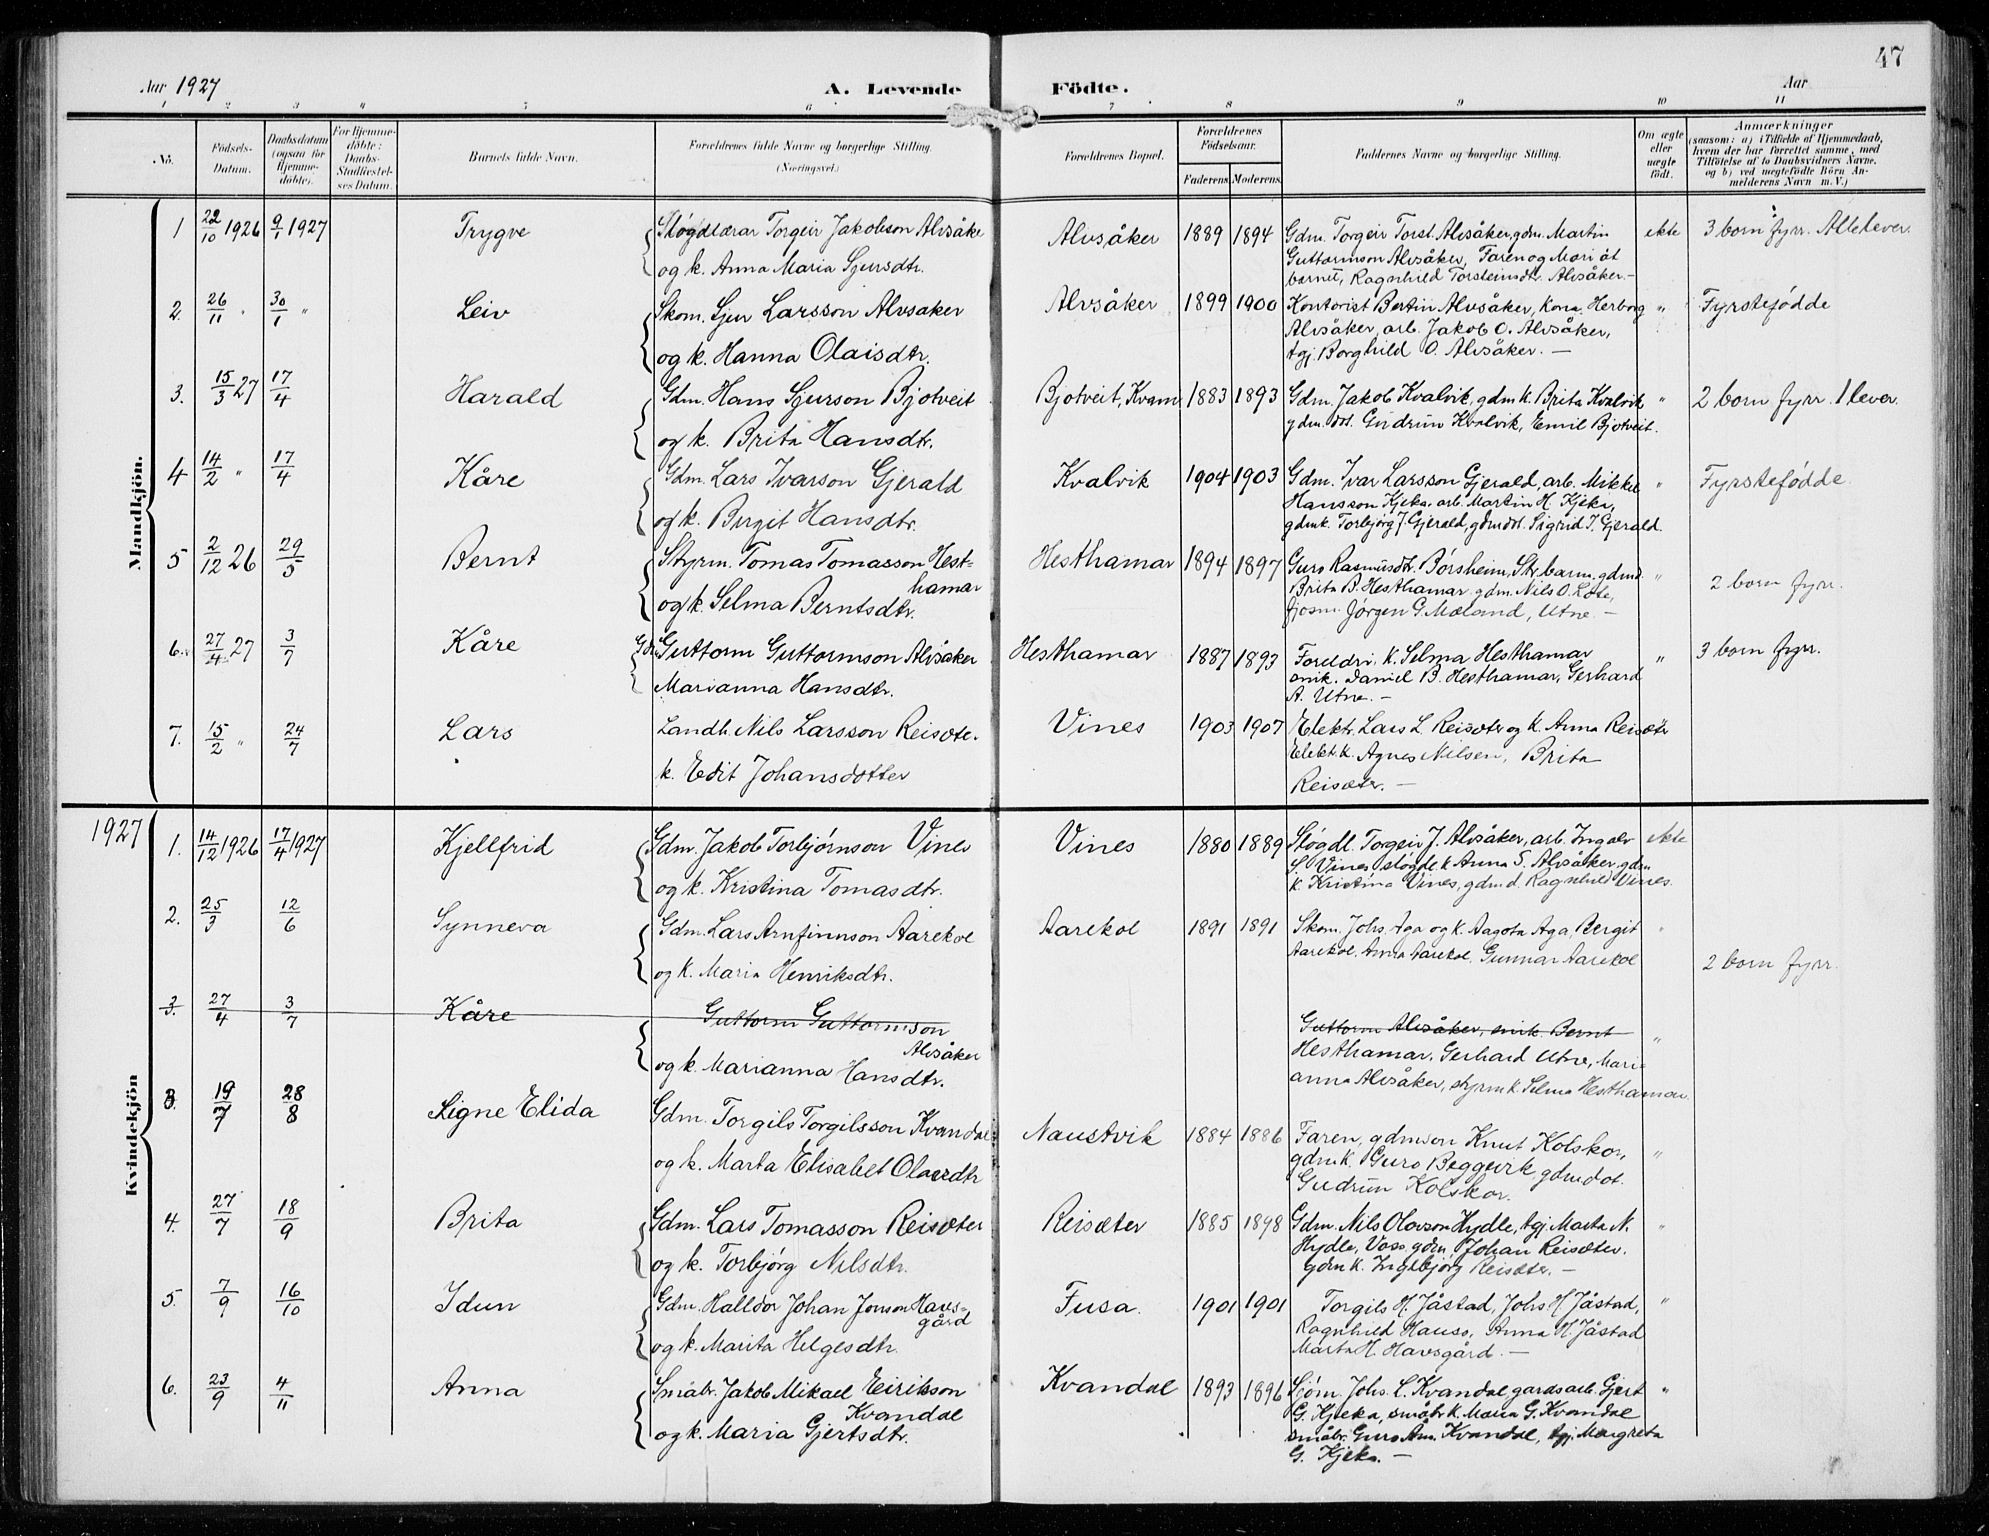 47
Aar 1927
A. Levende
Födte.
Aar
1 2 3 " 5 6 7 8 9 10 11
No.
Födsels-Datum.
Daabsdatum (ogsaa for Hjemme-döbte).
For Hjemme-döbte: Daabs-Stadfæstel-ses Datum.
Barnets fulde Navn.
Forældrenes fulde Navne og borgerlige Stilling. (Næringsvei.)
Forældrenes Bopæl.
Forældrenes Födselsaar.
Faderens. Moderens.
Faddernes Navne og borgerlige Stilling.
Om ægte eller uægte födt.
Anmærkninger
(saasom: a) i Tilfælde af Hjemmedaab, hvem der har forrettet samme, med Tilföielse af to Daabsvidners Navne, og b) ved uægtefödte Börn An-melderens Navn m. V.)
Mandkjön.
1 22/10 1926 9/1 1927 Trygve
Sløgdlærar Torgeir Jakobson Alvsåke
og k. Anna Maria Sjursdtr.
Alvsåker 1889 1894
Gdm. Torgeir Torst. Alvsåker, gdm. Martin
Guttormson Alvsåker, Faren og Mori åt
barnet, Ragnhild Torsteinsdtr. Alvsåker.—
ekte
3 born fyrr. Alle lever.
2. 26/11 " 30/1 " Leiv
Skom. Sjur Larsson Alvsaker
og k. Hanna Olaisdtr.
Alvsåker 1899 1900
Kontorist Bertin Alvsåker, Kona Herborg
Alvsåker, arb. Jakob O. Alvsåker,
tgj. Borghild O. Alvsåker. —
"
Fyrstefødde
3. 15/3 27 17/4 Harald
Gdm. Hans Sjurson Bjotveit
og k. Brita Hansdtr.
Bjotveit, Kvam 1883 1893
Gdm. Jakob Kvalvik, gdm k. Brita Kvalvik
gdm. dt. Gudrun Kvalvik, Emil Bjotveit.
"
2 born fyrr. 1 lever.
4 14/2 " 17/4 Kåre
Gdm. Lars Ivarson Gjerald
og k. Birgit Hansdtr.
Kvalvik 1904 1903
Gdm. Ivar Larsson Gjerald, arb. Mikkel
Hansson Kjeka, arb. Martin H. Kjeka,
gdmk. Torbjørg J. Gjerald, gdmdt. Sigrid I. Gjerald.
"
Fyrstefødde.
5 2/12 26 29/5 Bernt
Styrm. Tomas Tomasson Hest-
hamar
og k. Selma Berntsdtr.
Hesthamar 1894 1897
Guro Rasmusdt. Børsheim, Strbarm. gdmd.
Brita B. Hesthamar, gdm. Nils O. Lote,
fjosm. Jørgen G. Mæland, Utne —
"
2 born fyrr.
6. 27/4 27 3/7 Kåre
Gdm Guttorm Guttormson Alvsåker
Marianna Hansdtr.
Hesthamar 1887 1893
Foreldri, k. Selma Hesthamar
snik. Daniel B. Hesthamar, Gerhard
A. Utne. —
"
3 born fyrr.
7. 15/2 " 24/7 Lars
Landh. Nils Larsson Reisæte.
k. Edit Johansdotter
Vines 1903 1907
Elektr. Lars L. Reisæter og k. Anna Reisæter
Elektr.k. Agnes Nilsen, Brita
Reisæter. —
1927
Kvindekjön
1. 14/12 1926 17/4 1927 Kjellfrid
Gdm. Jakob Torbjørnson Vines
og k. Kristina Tomasdtr.
Vines 1880 1889
Sløgdl. Torgeir J. Alvsåker, arb. Ingolv
S. Vines sløgdl. k Anna S. Alvsåker, gdm
k. Kristina Vines, gdm d. Ragnhild Vines.
ekte
2. 25/3 12/6 Synneva
Gdm. Lars Arnfinnson Aarekol
og k. Maria Henriksdtr.
Aarekol 1891 1891
Skom. Johs. Aga og k. Aagota Aga, Bergit
Aarekol. Anna Aarekol. Gunnar Aarekol
"
2 born fyrr.
3. 27/4 3/7 Kåre
Guttorm Guttormson
Alvsåker
og k. Marianna Hansdtr.
Guttorm Alvsåker, snik. Bernt
Hesthamar, Gerhard Utne, Mari-
anna Alvsåker, styrm k. Selma Hesthamar.
"
3. 19/7 28/8 Signe Elida
Gdm. Torgils Torgilsson Kvandal
og k. Marta Elisabet Olavsdtr
Naustvik 1884 1886
Faren, gdmson Knut Kolskor,
gdm k. Guro Beggevik gdmdot.
Gudrun Kolskor.
"
4. 27/7 18/9 Brita
Gdm. Lars Tomasson Reisæter
og k. Torbjørg Nilsdtr.
Reisæter 1885 1898
Gdm. Nils Olavson Hydle, tgj. Marta N.
Hydle, Voss, gdm. Johan Reisæter.
gdm k. Ingebjørg Reisæter. —
"
5. 7/9 16/10 Idun
Gdm. Halldor Johan Jonson Havs-
gård
og k. Marita Helgesdtr.
Fusa. 1901 1901
Torgils H. Jåstad, Johs H Jåstad,
Ragnhild Hauso, Anna H. Jåstad
Marta H. Havsgård. —
"
6. 23/9 4/11 Anna
Småbr. Jakob Mikael Eirikson
Kvandal
og k. Maria Gjertsdtr.
Kvandal 1893 1896
Sjøm. Johs. L. Kvandal, gardsarb. Gjert
G. Kjeka, småbr k. Maria G. Kvandal
småbr. Guro Am. Kvandal, tgj. Margreta
G. Kjeka. —
"